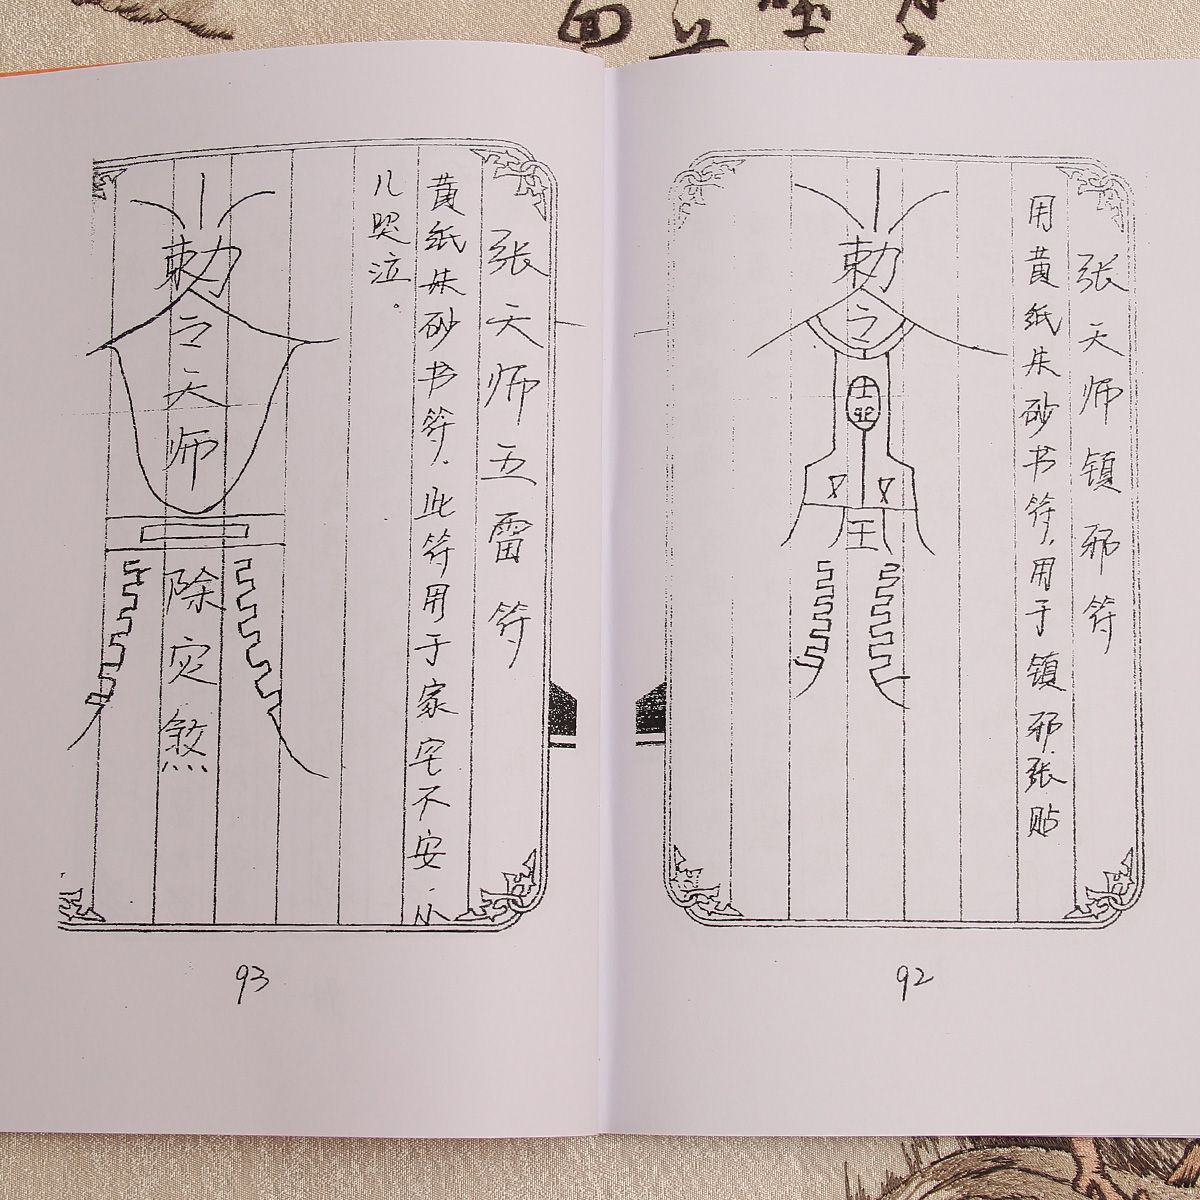 张天师镇邪符
用黄纸朱砂书符,用于镇邪.张贴
勅令
92
张天师五雷符
黄纸朱砂书符.此符用于家宅不安.小
儿哭泣。
勅令天师
除灾煞
93